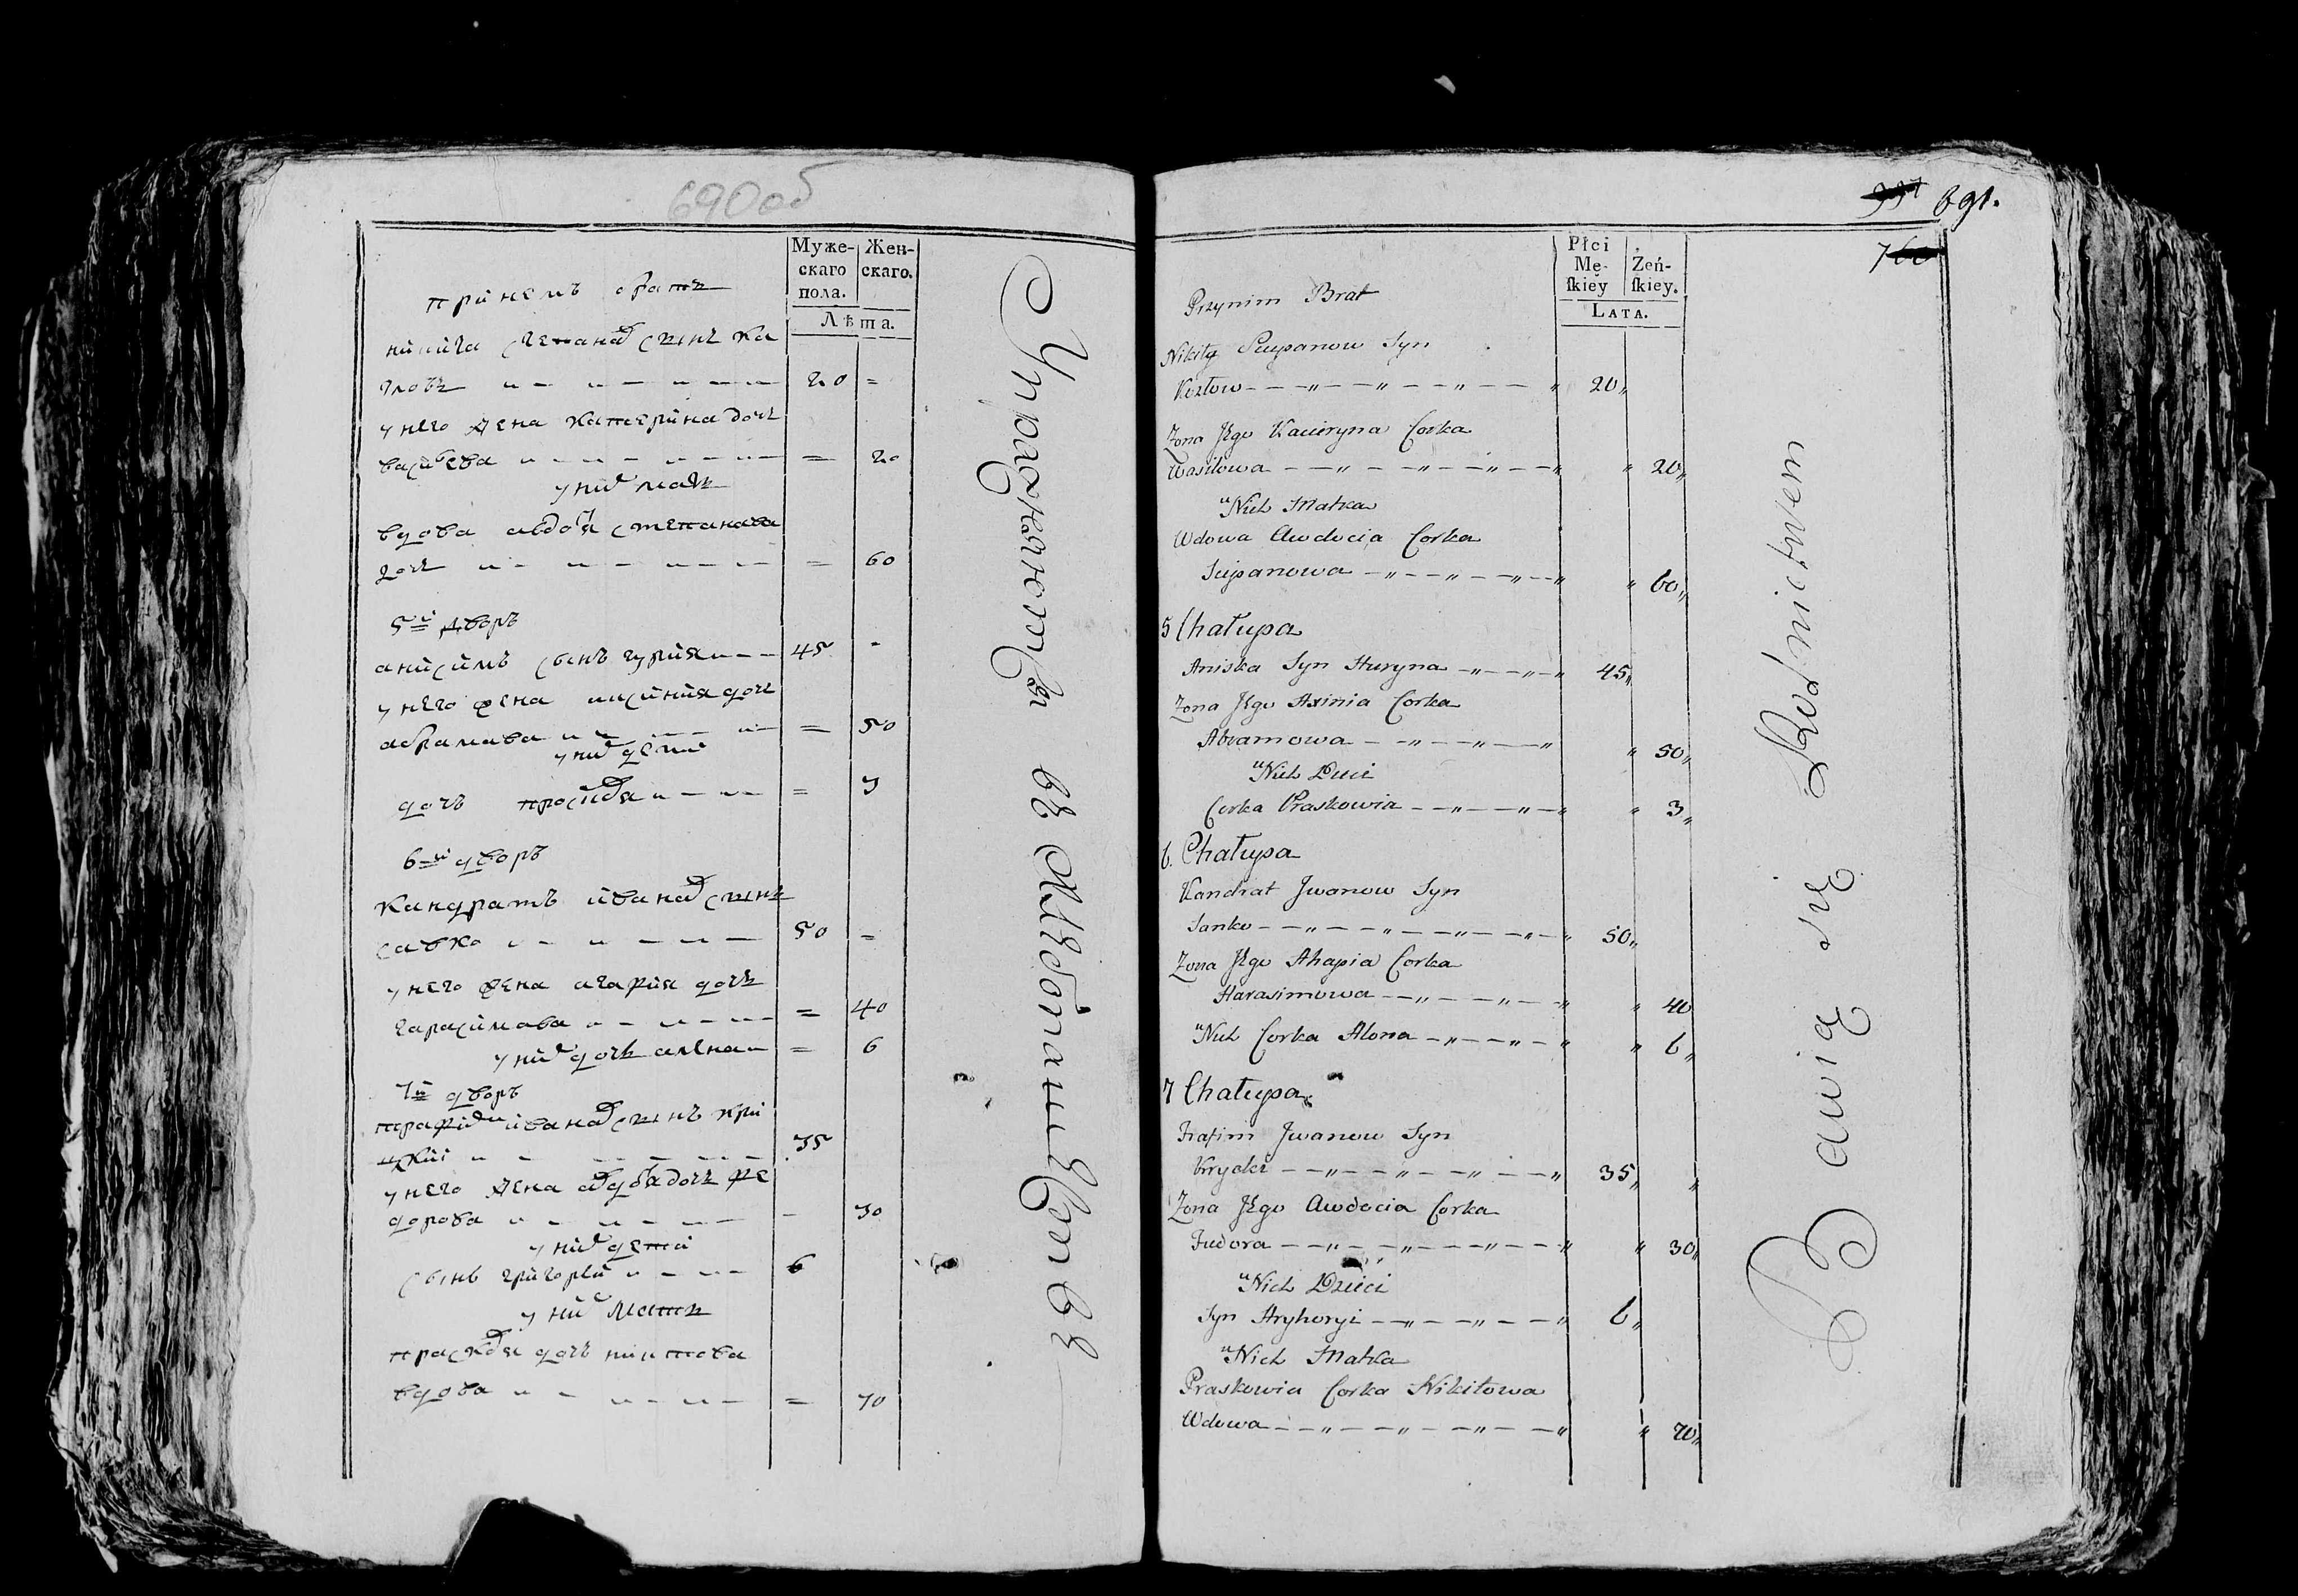 690об
Муже-
скаго
пола.
Жен-
скаго.
Лѣта.
при немъ братъ
никита степановъ сынъ ка
зловъ 20 =
у него жена катерина дочь
васильева = 20
у них мать
вдова авдотья степанава
дочь = 60
5й дворъ
анисимъ сынъ гурия 45 -
у него жена аксиния дочь
абрамава = 50
у них дети
дочь = 3
6й дворъ
кандратъ иванов сынъ
савко 50 =
у него жена агафия дочь
гарасимава = 40
у них дочь алена = 6
7й дворъ
трафим иванов сынъ кри
цкии 35
у него жена авдотья дочь фе
дорова - 30
у них дети
сынъ григореи 6
у них мать
дочь никитова
вдова = 70
Упражняются въ хлѣбопашествѣ
691.
Płci
Mę-
ſkiey
Żeń-
ſkiey.
LATA.
Przynim Brat
Nikity Sciepanow Syn
Kozłow 20
Zona Jego Kacieryna Corka
Wasilowa 20
u Nich Matka
Wdowa Awdocia Corka
Sciepanowa 60
5 Chałupa
Aniska Syn Huryna 45
Zona Jego Axinia Corka
Abramowa 50
u Nich Dzieci
Corka Praskowia 3
6. Chałupa
Kandrat Jwanow Syn
Sanko 50
Zona Jego Ahapia Corka
Harasimowa 40
u Nich Corka Alona 6
7 Chałupa
Trafim Jwanow Syn
Krycki 35
Zona Jego Awdocia Corka
Fiedora 30
u Nich Dzieci
Syn Hryhoryi 6
u Nich Matka
Praskowia Corka Nikitowa
Wdowa 70
Bawią się Rolnictwem